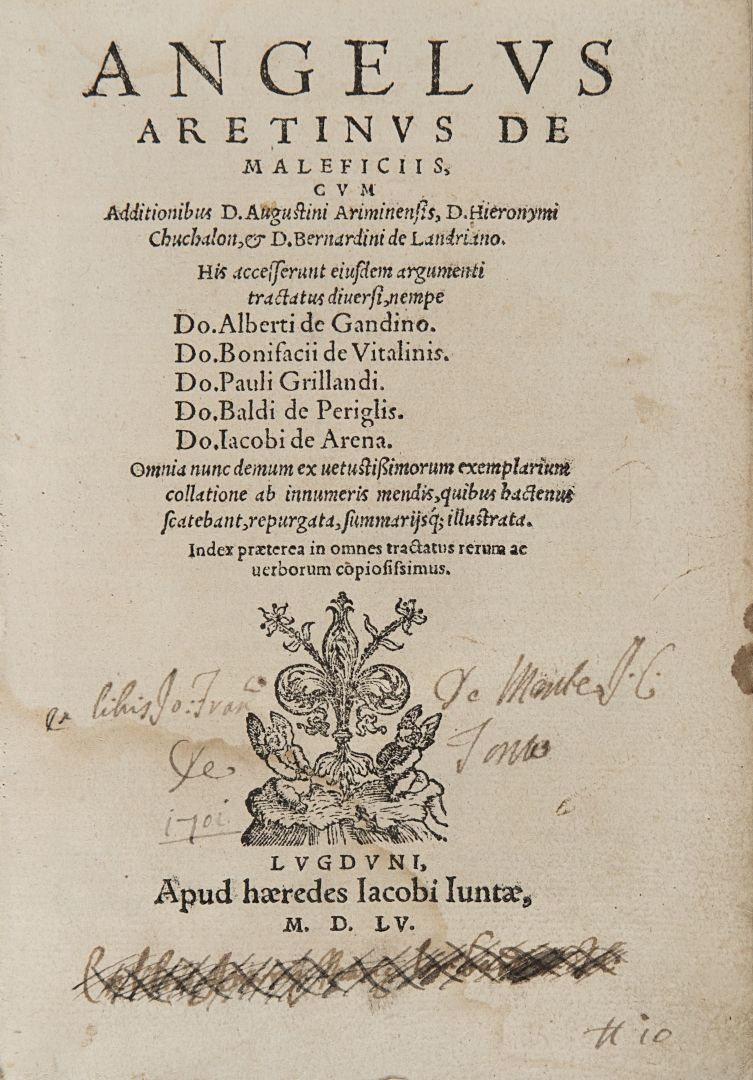 ANGELVS
ARETINVS DE
MALEFICIIS,
CVM
Additionibus D. Augustini Ariminensis, D. Hieronymi
Chuchalon, & D. Bernardini de Landriano.
His accesserunt eiusdem argumenti
tractatus diuersi, nempe
Do. Alberti de Gandino.
Do. Bonifacii de Vitalinis.
Do. Pauli Grillandi.
Do. Baldi de Periglis.
Do. Iacobi de Arena.
Omnia nunc demum ex uetustißimorum exemplarium
collatione ab innumeris mendis, quibus hactenus
scatebant, repurgata, summarijsq́; illustrata.
Index præterea in omnes tractatus rerum ac
uerborum cōpiosissimus.
ex libis Jo: Fran.co De Monte J. C.
De
1701
LVGDVNI,
Apud hæredes Iacobi Iuntæ,
M. D. LV.